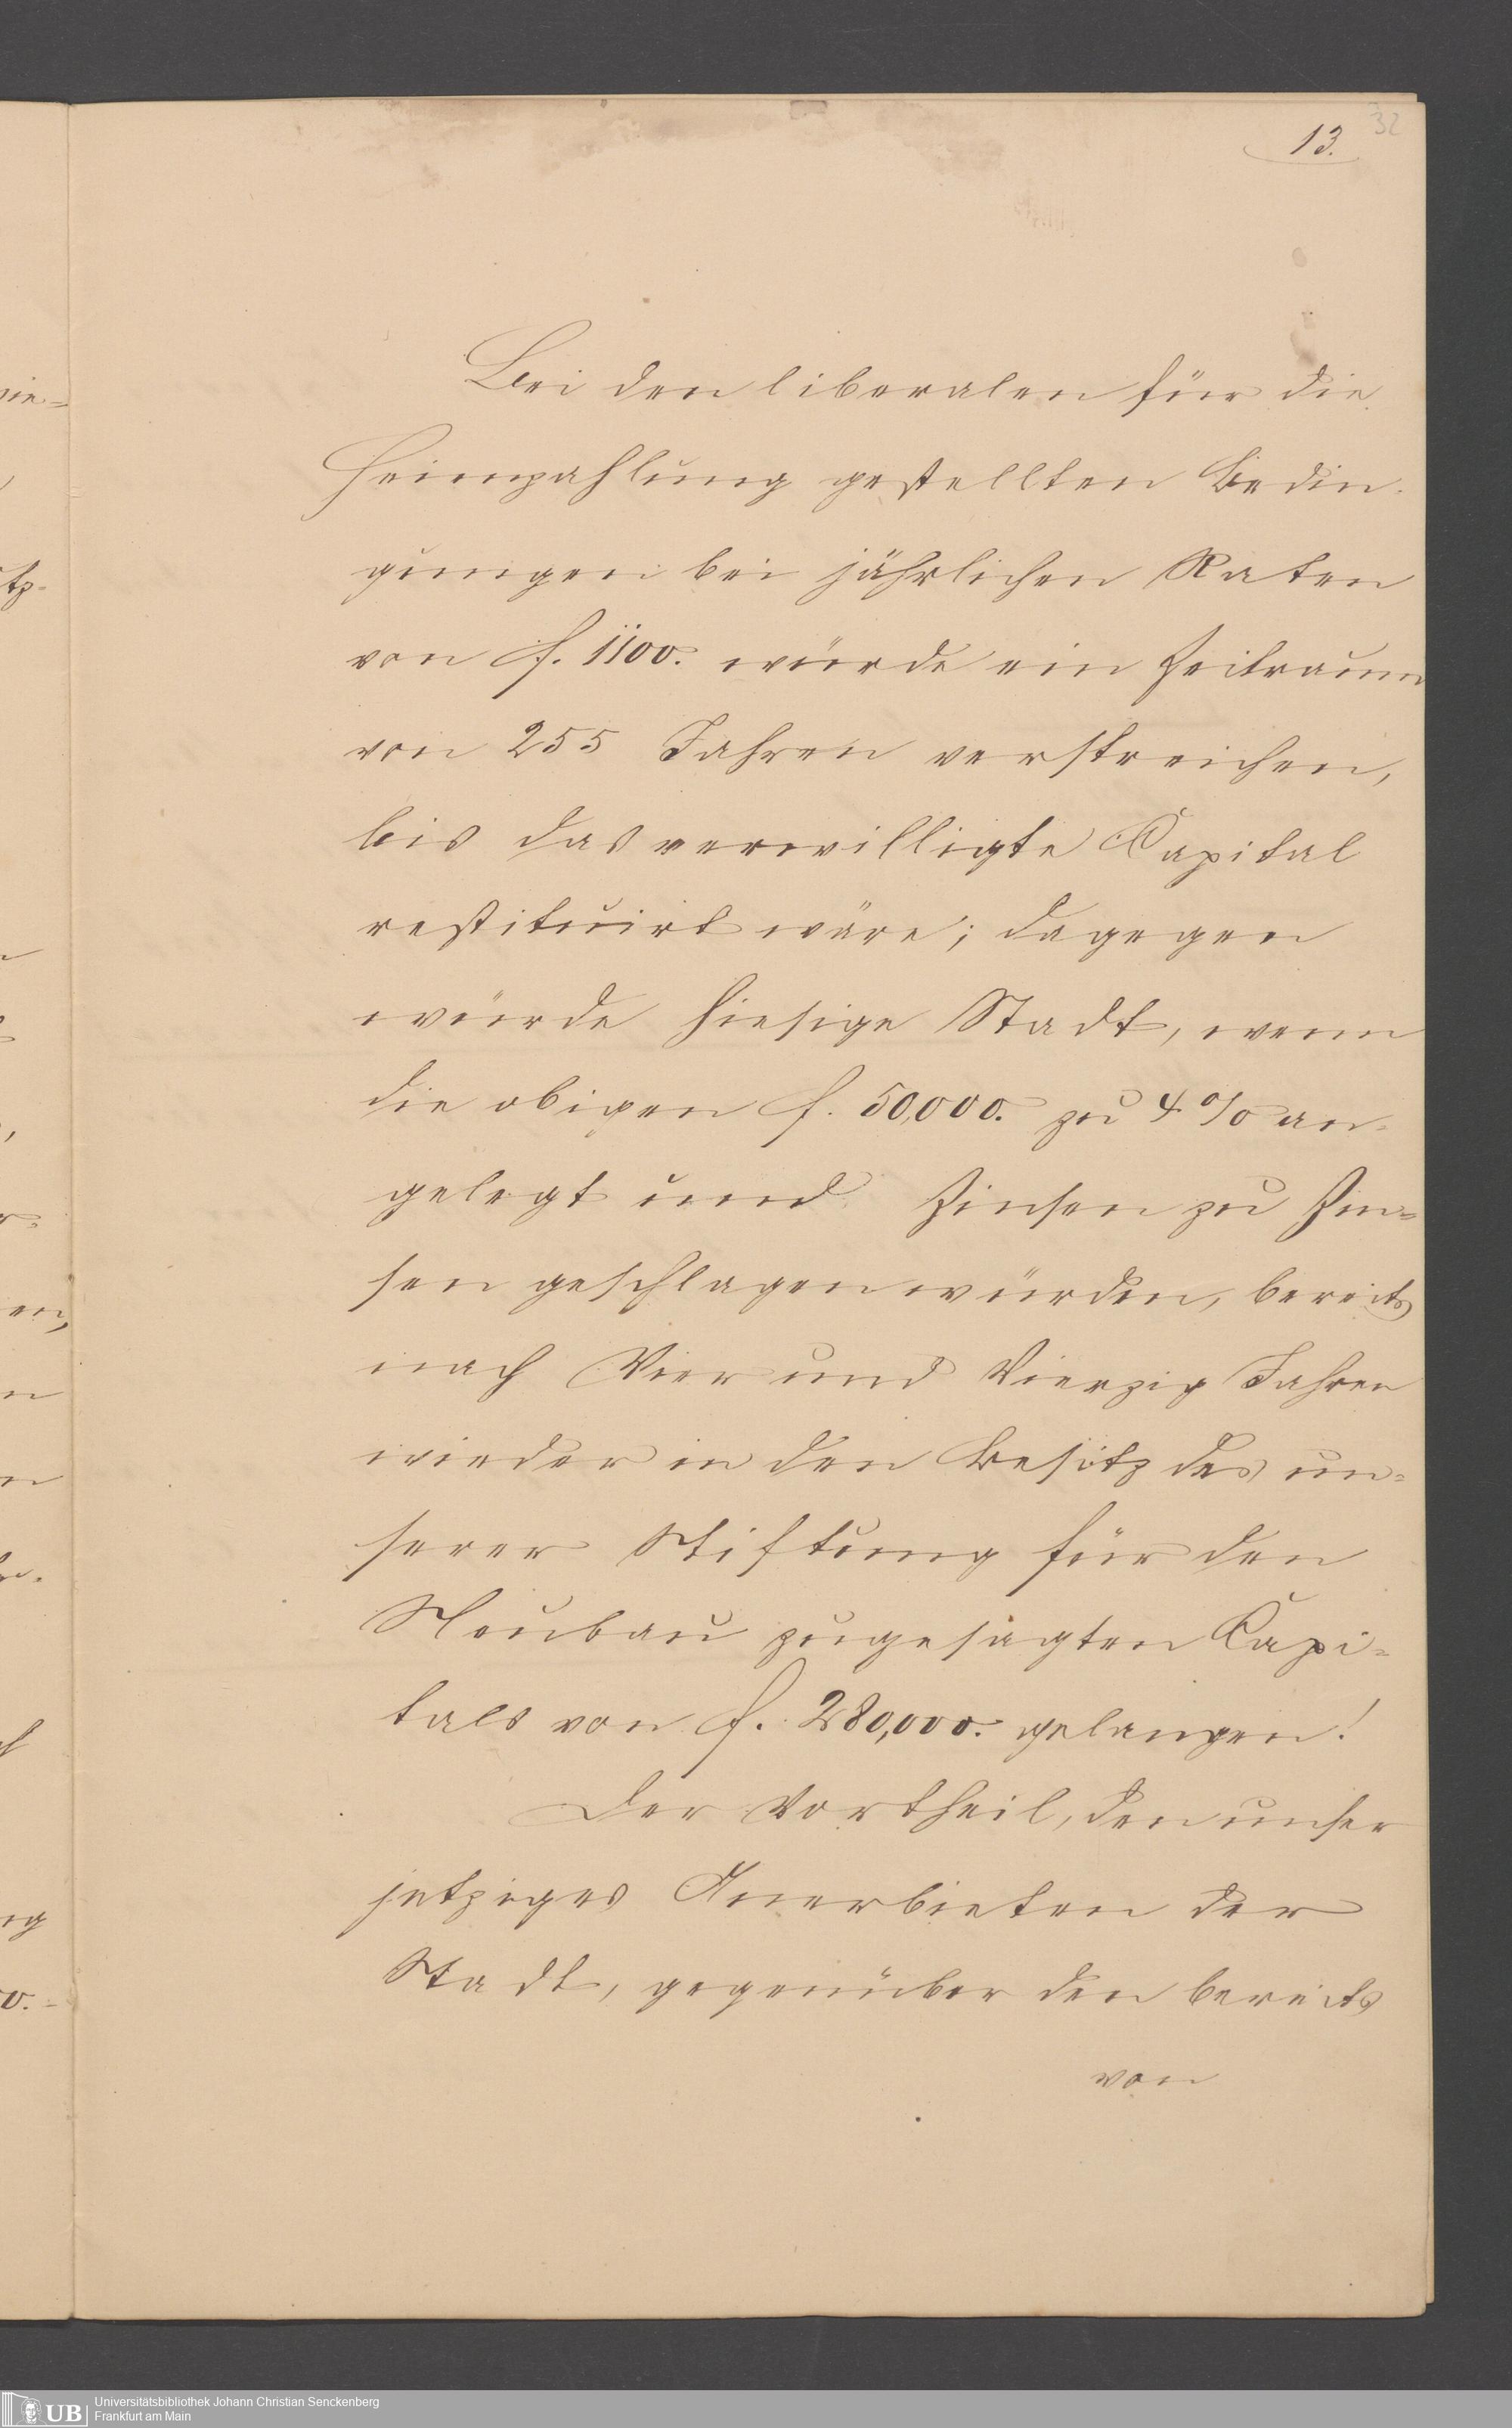 32
13.
Bei den liberalen für die
Heimzahlung gestellten Bedin-
gungen bei jährlichen Raten
von f. 1100. würde ein Zeitraum
von 255 Jahren verstreichen,
bis das verwilligte Capital
restituirt wäre; dagegen
würde hiesige Stadt, wenn
die obigen f. 50,000. zu 4% an-
gelegt und Zinsen zu Zin=
sen geschlagen würden, bereits
nach Vier und Vierzig Jahren
wieder in den Besitz des un=
serer Stiftung für den
Neubau zugesagten Capi=
tals von f. 280,000. gelangen!
Der Vortheil, den unser
jetziges Anerbieten der
Stadt, gegenüber den bereits
von
UB
Universitätsbibliothek Johann Christian Senckenberg
Frankfurt am Main